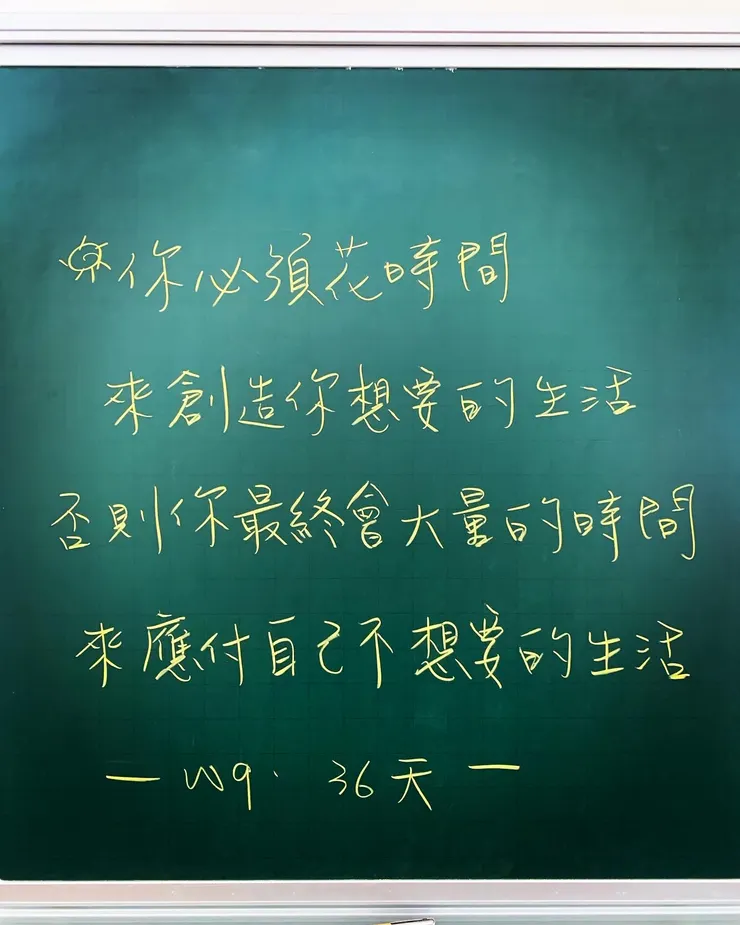 你必須花時間
來創造你想要的生活
否則你最終會大量的時間
來應付自己不想要的生活
— W9. 36天 —